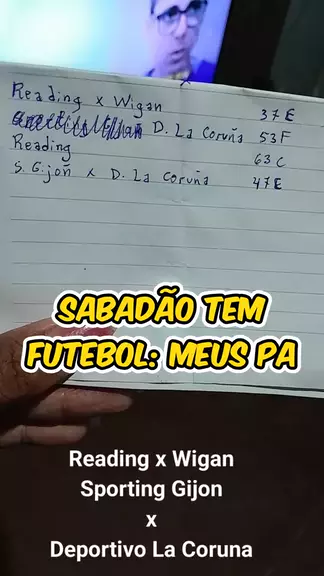 Reading x Wigan 37E
D. La Coruña 53F
Reading 63C
S. Gijoñ x D. La Coruña 47E
SABADÃO TEM
FUTEBOL: MEUS PA
Reading x Wigan
Sporting Gijon
x
Deportivo La Coruna